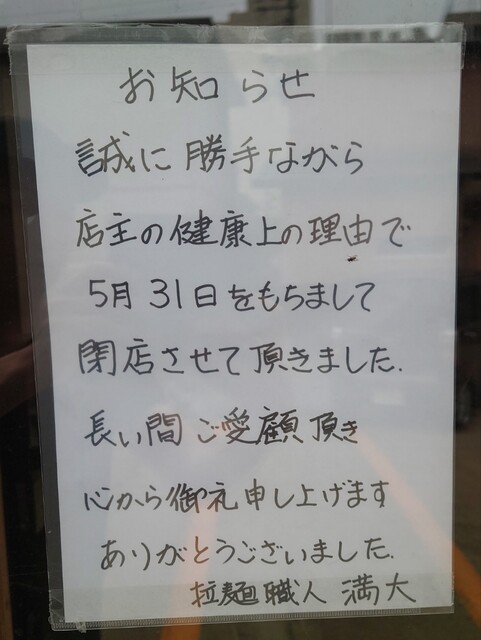 お知らせ
誠に勝手ながら
店主の健康上の理由で
5月31日をもちまして
閉店させて頂きました.
長い間ご愛顧頂き
心から御礼申し上げます
ありがとうございました.
拉麺職人 満大